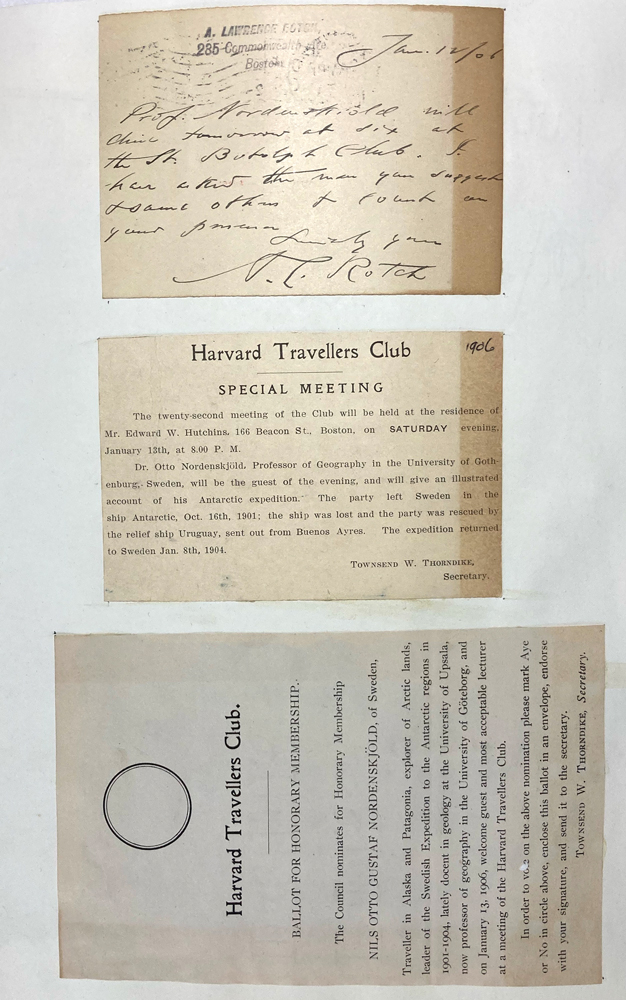 A. LAWRENCE ROTCH,
235 Commonwealth Ave.
Boston
Jan. 12/06
Prof. Nordenskiöld will
dine tomorrow at six at
the St. Botolph Club. I
have asked the men you suggest
& some others & count on
your presence
Sincerely yours
A. L. Rotch
Harvard Travellers Club
1906
SPECIAL MEETING
The twenty-second meeting of the Club will be held at the residence of
Mr. Edward W. Hutchins, 166 Beacon St., Boston, on SATURDAY evening,
January 13th, at 8.00 P. M.
Dr. Otto Nordenskjöld, Professor of Geography in the University of Goth-
enburg, Sweden, will be the guest of the evening, and will give an illustrated
account of his Antarctic expedition. The party left Sweden in the
ship Antarctic, Oct. 16th, 1901; the ship was lost and the party was rescued by
the relief ship Uruguay, sent out from Buenos Ayres. The expedition returned
to Sweden Jan. 8th, 1904.
TOWNSEND W. THORNDIKE,
Secretary.
Harvard Travellers Club.
BALLOT FOR HONORARY MEMBERSHIP.
The Council nominates for Honorary Membership
NILS OTTO GUSTAF NORDENSKJÖLD, of Sweden,
Traveller in Alaska and Patagonia, explorer of Arctic lands,
leader of the Swedish Expedition to the Antarctic regions in
1901-1904, lately docent in geology at the University of Upsala,
now professor of geography in the University of Göteborg, and
on January 13, 1906, welcome guest and most acceptable lecturer
at a meeting of the Harvard Travellers Club.
In order to vote on the above nomination please mark Aye
or No in circle above, enclose this ballot in an envelope, endorse
with your signature, and send it to the secretary.
TOWNSEND W. THORNDIKE, Secretary.